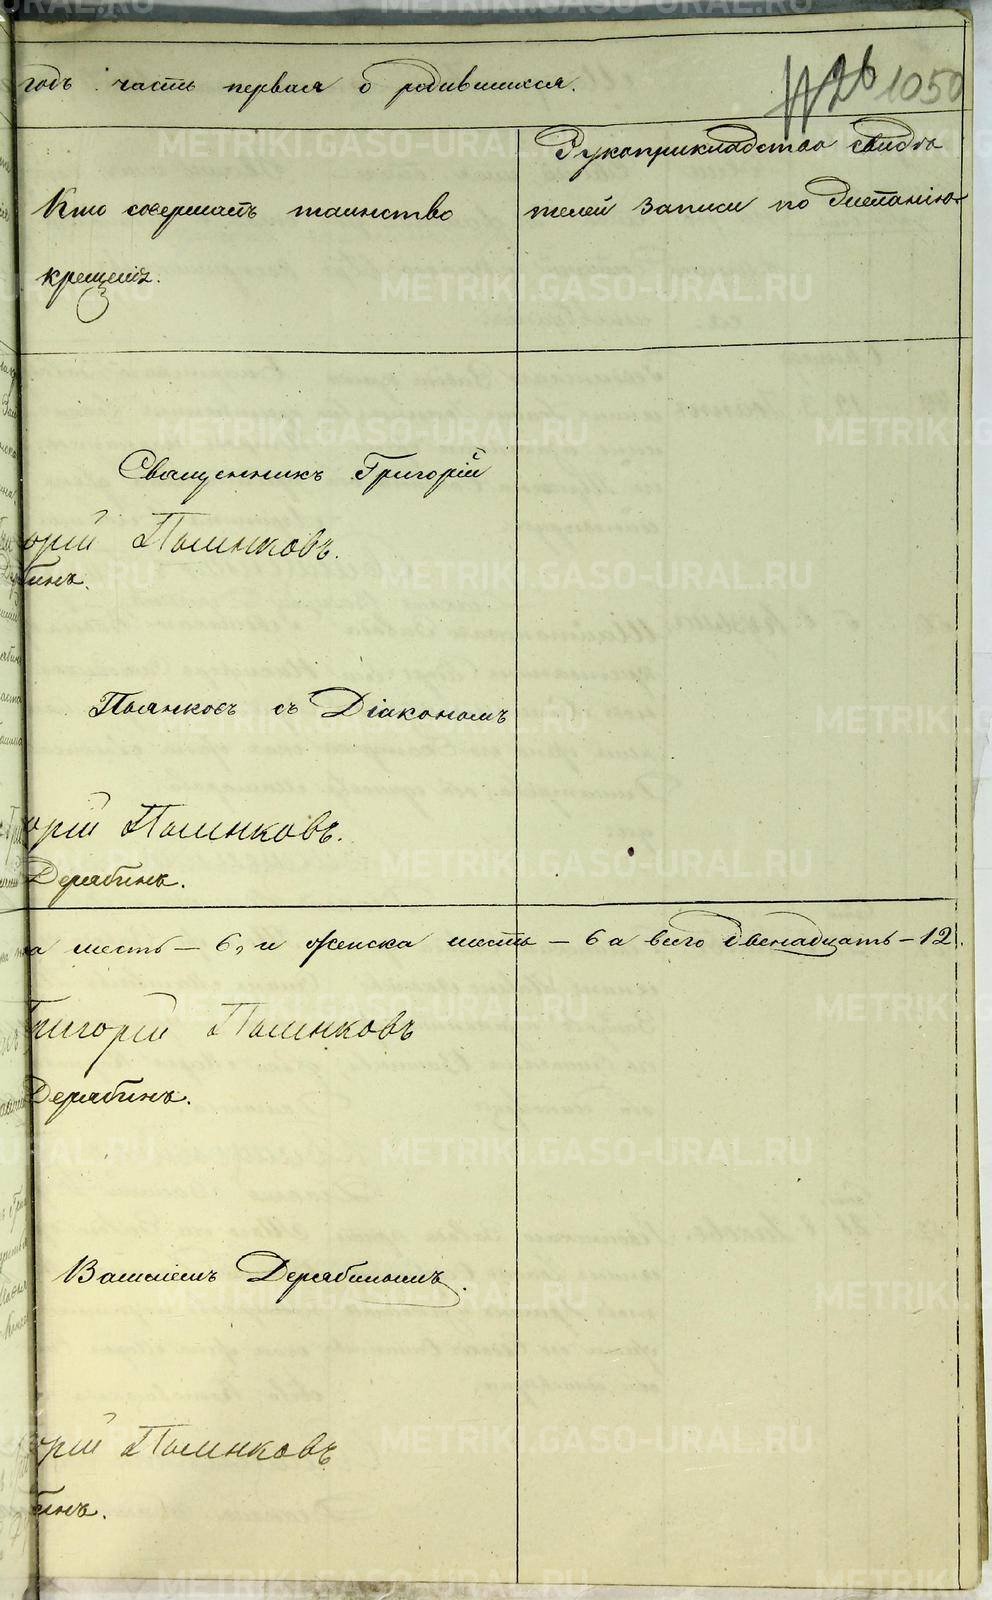 годъ часть первая о родившихся.
1050
Рукоприкладство свидѣ
Кто совершалъ таинство
телей записи по желанію
крещенія.
Священникъ Григорій
орій Пьянковъ.
бинъ.
Пьянковъ съ Діакономъ
орій Пьянковъ.
Дерябинъ.
а шесть – 6, и женска шесть – 6 а всего двенадцать – 12.
Григорій Пьянковъ
Дерябинъ.
Василіемъ Дерябинымъ.
орій Пьянковъ
бинъ.
METRIKI.GASO-URAL.RU